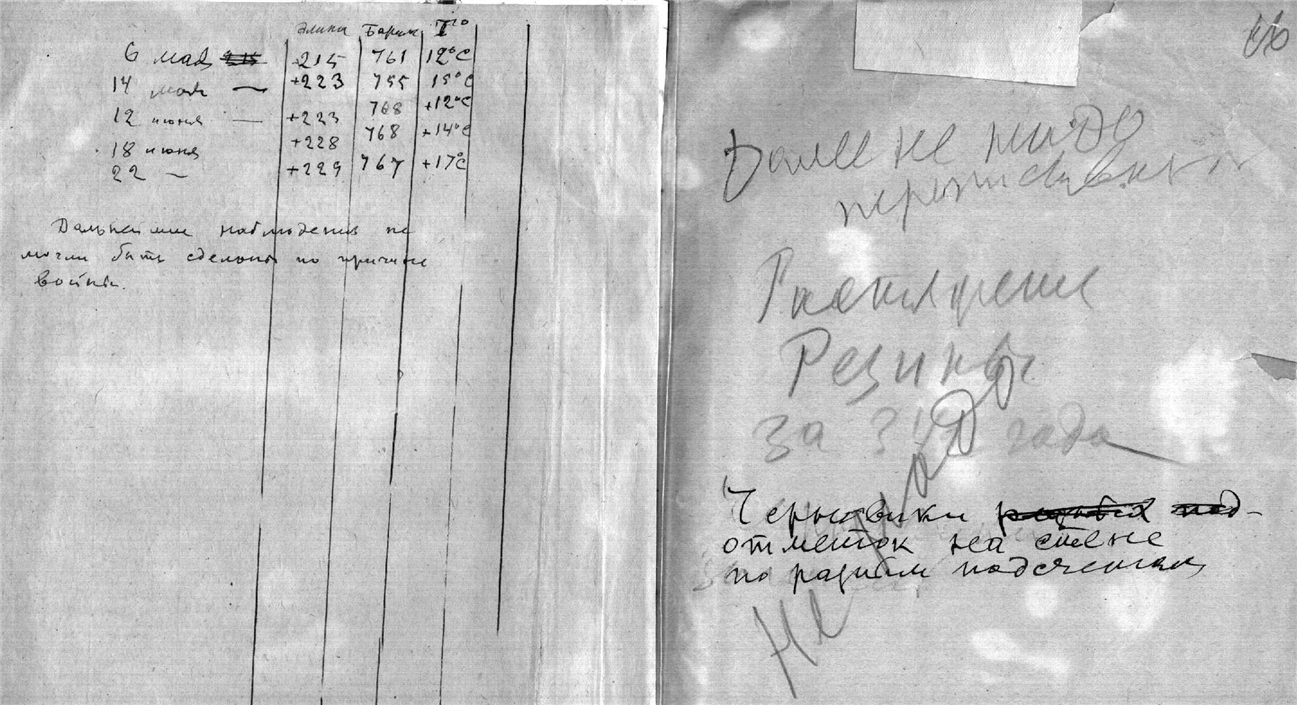 Длина Баром T°
6 мая 215 761 12°C
14 мая — +223 755 15°C
12 июня — +223 768 +12°C
18 июня +228 768 +14°C
22 — +229 767 +17°C
Дальнейшие наблюдения не
могли быть сделаны по причине
войны.
Далее не надо
переписывать
Растяжение
Резины
за 3 года
Черновики
отметок на стене
по разным подсчетам
Не надо